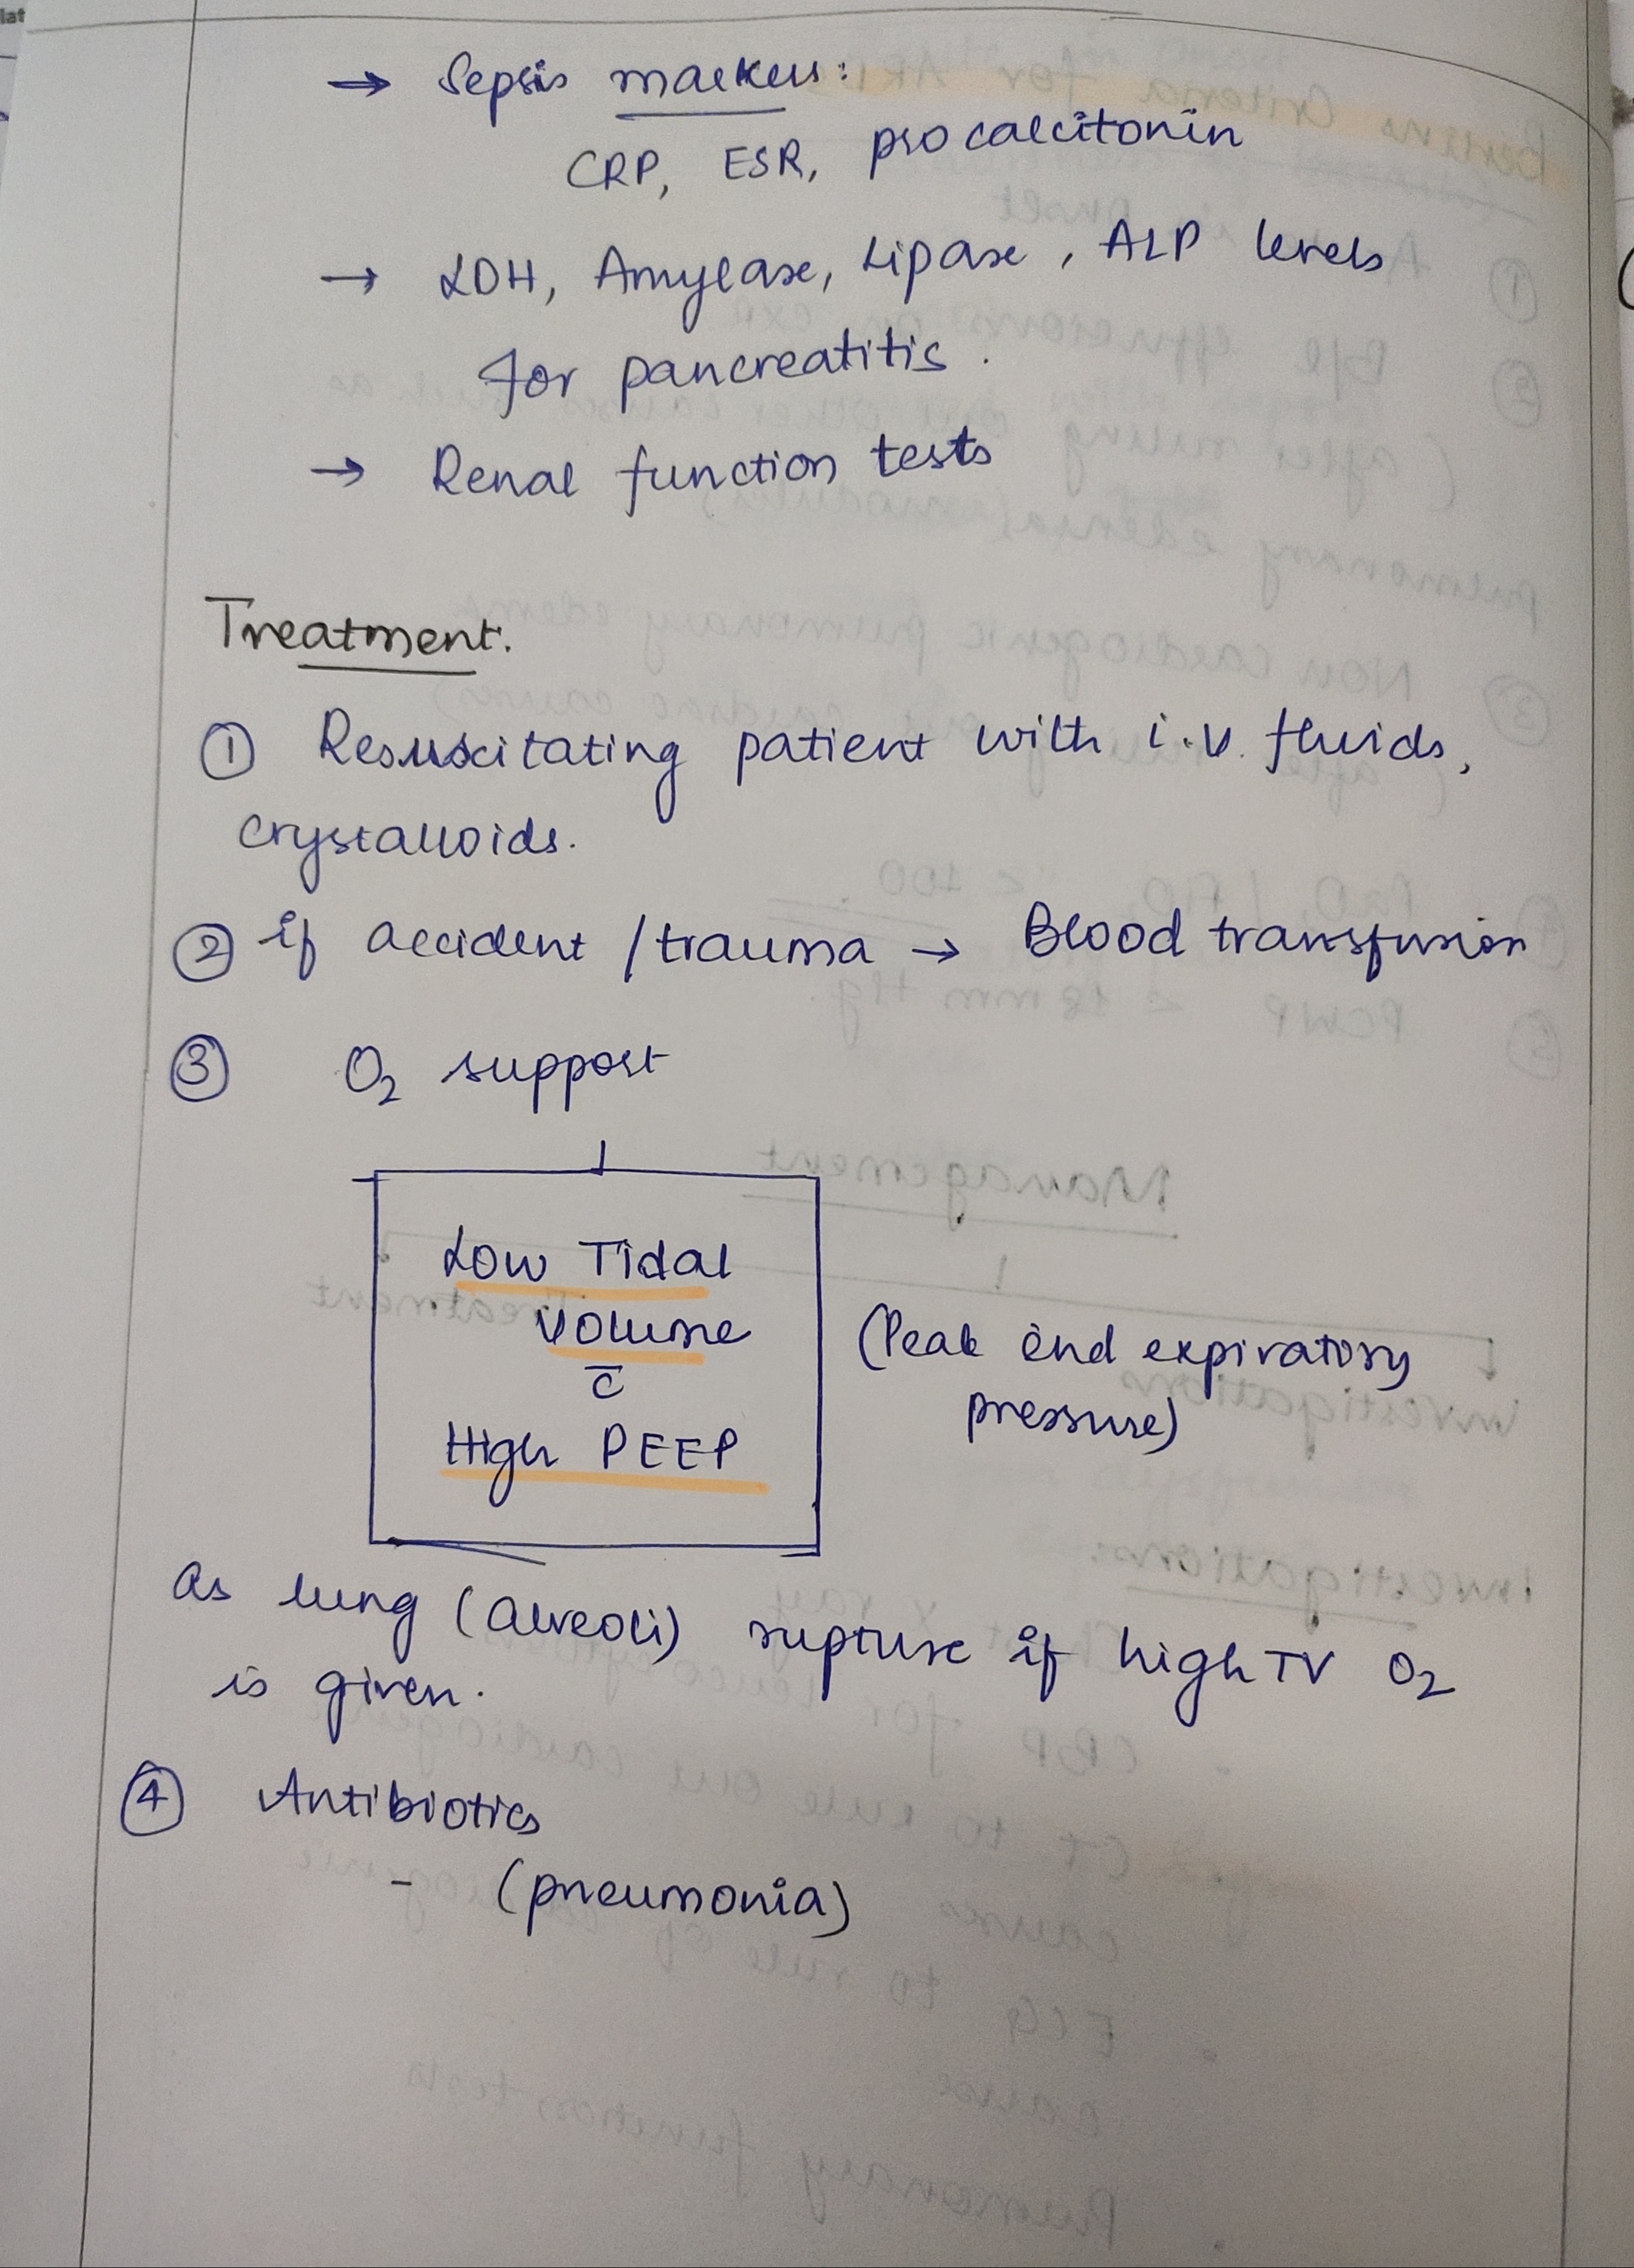 → Sepsis markers:
CRP, ESR, procalcitonin
→ LDH, Amylase, Lipase, ALP levels
for pancreatitis.
→ Renal function tests
Treatment.
① Resuscitating patient with i.v. fluids,
crystalloids.
② if accident / trauma → Blood transfusion
③ O2 support
Low Tidal
volume
c̅
High PEEP
(Peak end expiratory
pressure)
As lung (alveoli) rupture if high TV O2
is given.
④ Antibiotics
- (pneumonia)